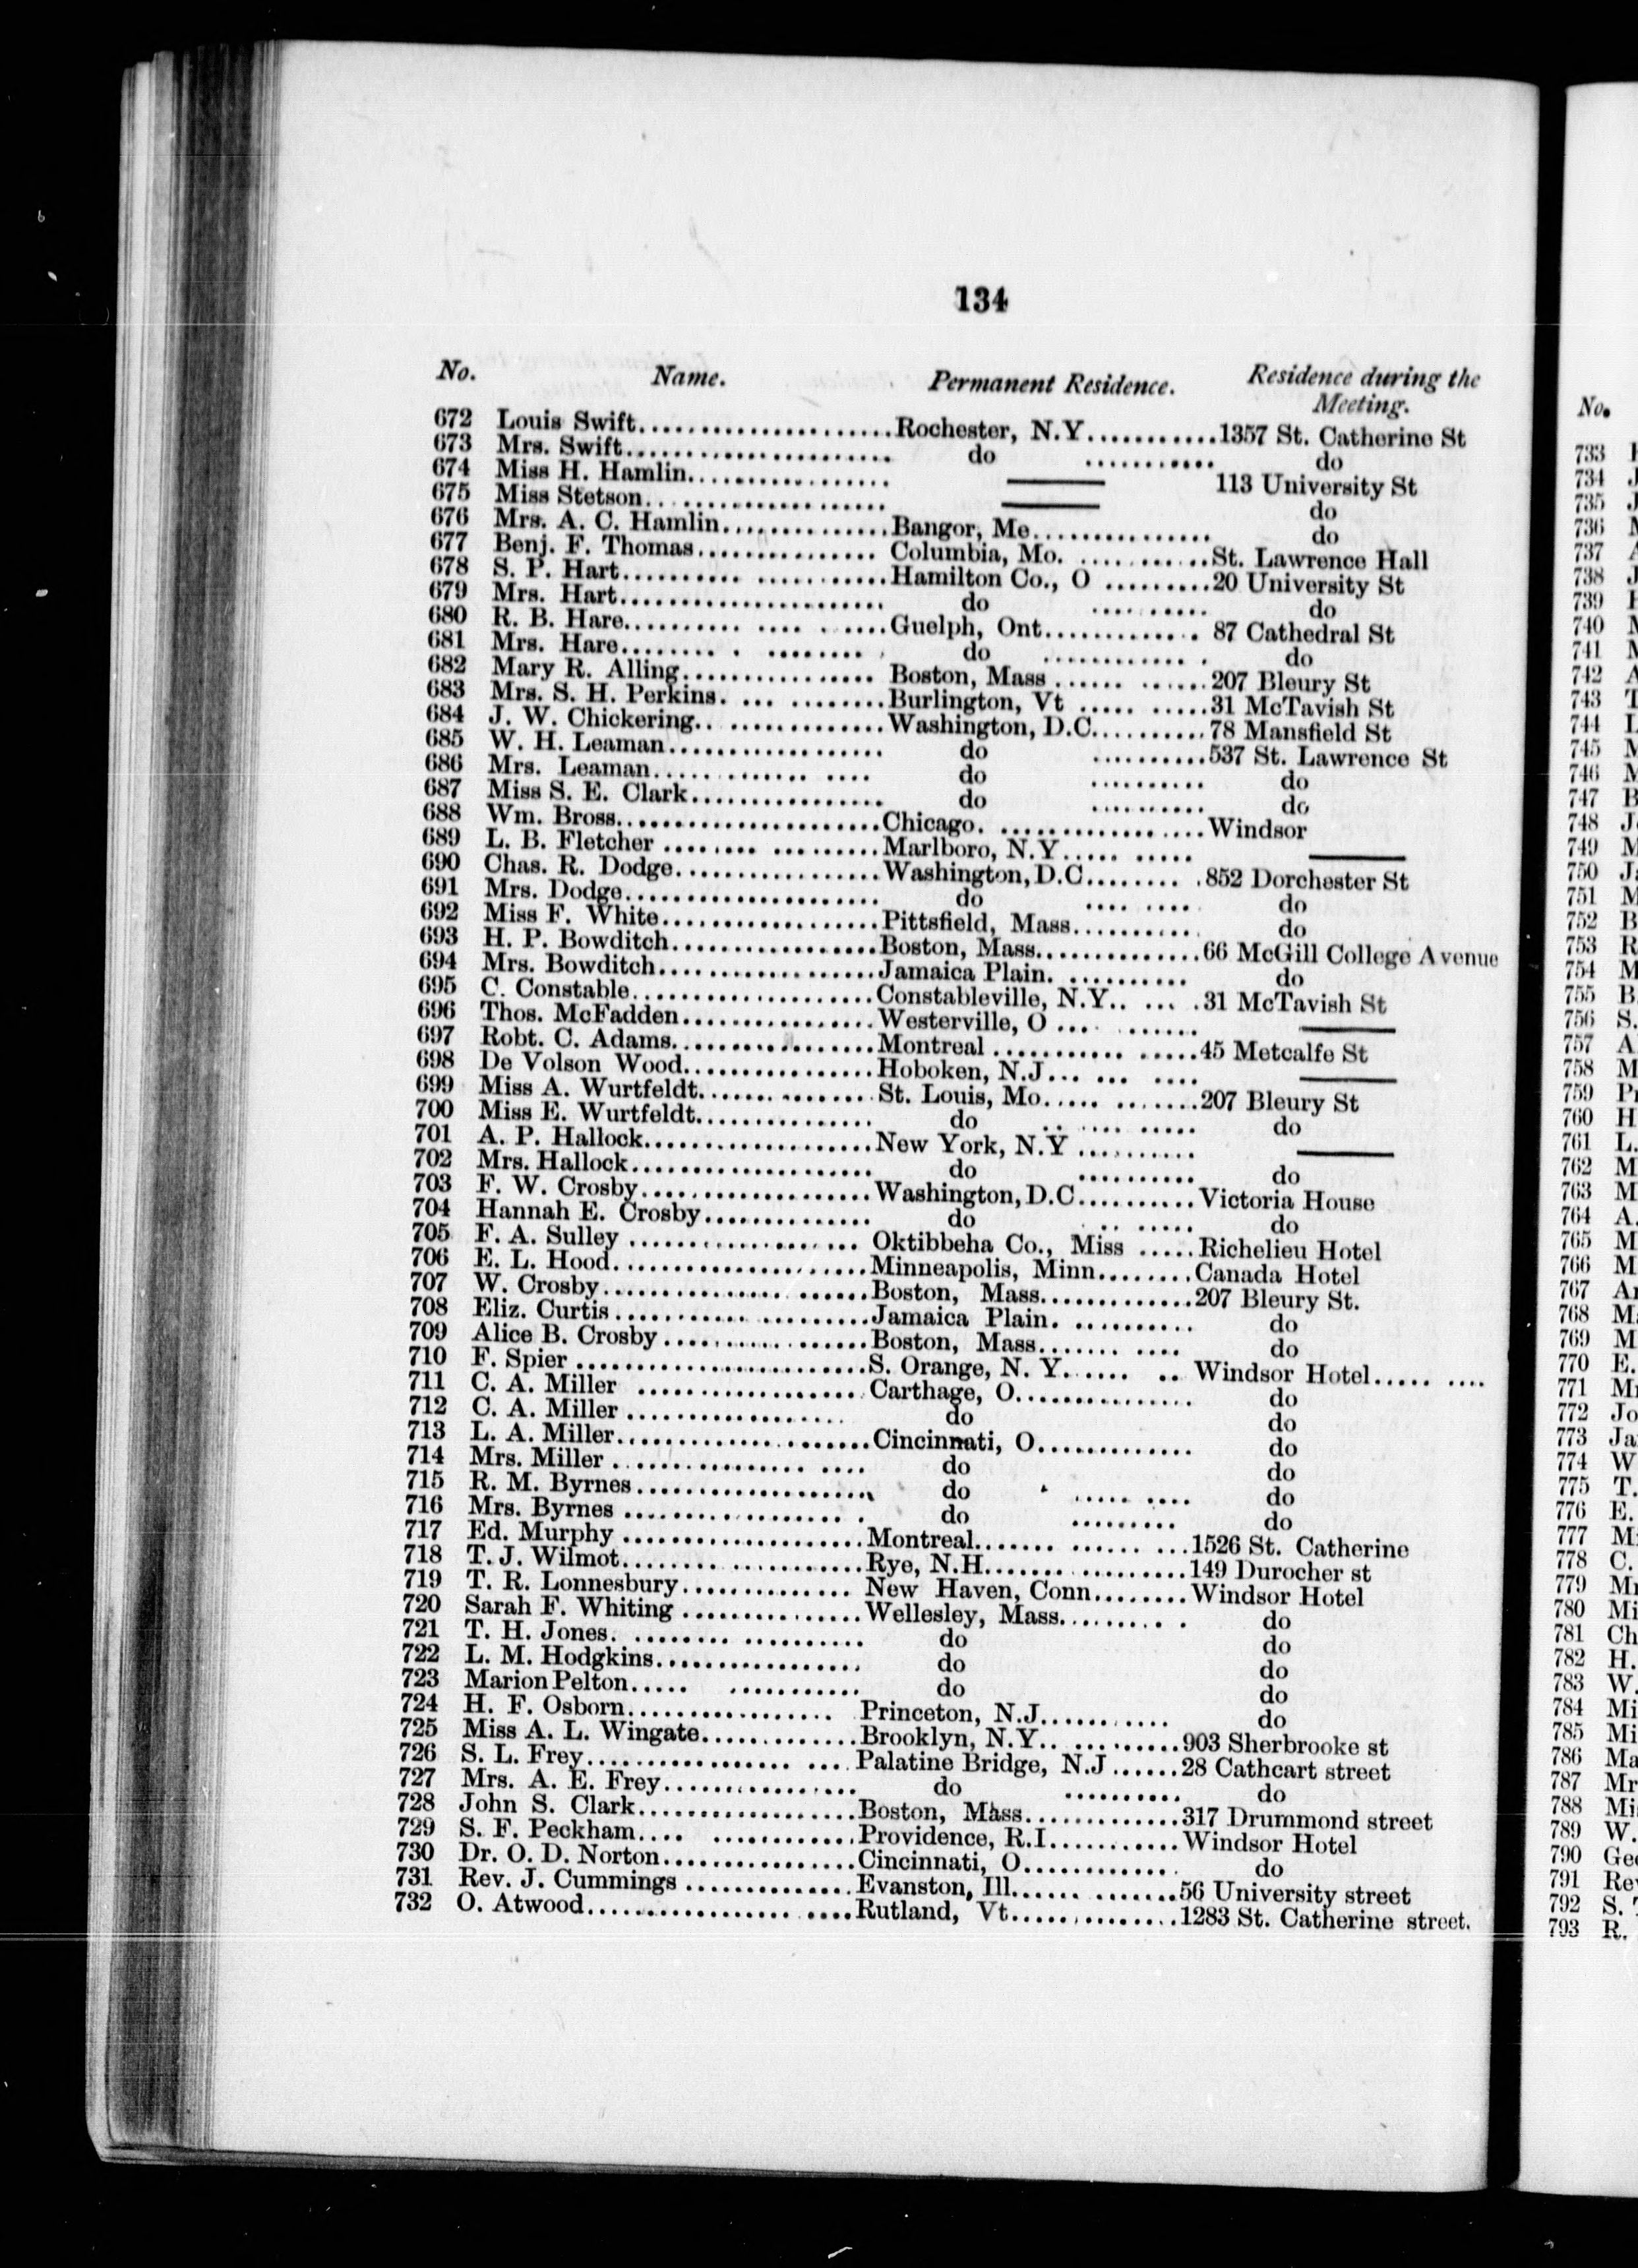 134
No. Name. Permanent Residence. Residence during the Meeting.
672 Louis Swift......................Rochester, N.Y...........1357 St. Catherine St
673 Mrs. Swift....................... do ........... do
674 Miss H. Hamlin.................. ——— 113 University St
675 Miss Stetson.................... ——— do
676 Mrs. A. C. Hamlin..............Bangor, Me............... do
677 Benj. F. Thomas............... Columbia, Mo. ...........St. Lawrence Hall
678 S. P. Hart.......... ...........Hamilton Co., O .........20 University St
679 Mrs. Hart....................... do .......... do
680 R. B. Hare.......... .... ......Guelph, Ont............. 87 Cathedral St
681 Mrs. Hare........ . ......... do ............. do
682 Mary R. Alling................. Boston, Mass ...... ......207 Bleury St
683 Mrs. S. H. Perkins. ... .........Burlington, Vt ..... .....31 McTavish St
684 J. W. Chickering.. .............Washington, D.C..........78 Mansfield St
685 W. H. Leaman................... do ..........537 St. Lawrence St
686 Mrs. Leaman............. .... do .......... do
687 Miss S. E. Clark................. do .......... do
688 Wm. Bross.......................Chicago. ..................Windsor
689 L. B. Fletcher ........ .........Marlboro, N.Y..... ..... ———
690 Chas. R. Dodge.................Washington, D.C........ .852 Dorchester St
691 Mrs. Dodge...................... do .... ..... do
692 Miss F. White...................Pittsfield, Mass........... do
693 H. P. Bowditch..................Boston, Mass..............66 McGill College Avenue
694 Mrs. Bowditch...................Jamaica Plain. .......... do
695 C. Constable.....................Constableville, N.Y.. ... .31 McTavish St
696 Thos. McFadden.................Westerville, O ... ....... ———
697 Robt. C. Adams..................Montreal ........... .....45 Metcalfe St
698 De Volson Wood................Hoboken, N.J... ... .... ———
699 Miss A. Wurtfeldt...............St. Louis, Mo..... .......207 Bleury St
700 Miss E. Wurtfeldt............... do .. .... ..... do
701 A. P. Hallock....................New York, N.Y .......... ———
702 Mrs. Hallock..................... do .......... do
703 F. W. Crosby....................Washington, D.C..........Victoria House
704 Hannah E. Crosby............... do .. ..... do
705 F. A. Sulley .................... Oktibbeha Co., Miss .....Richelieu Hotel
706 E. L. Hood......................Minneapolis, Minn........Canada Hotel
707 W. Crosby................ ......Boston, Mass.............207 Bleury St.
708 Eliz. Curtis......................Jamaica Plain. .......... do
709 Alice B. Crosby..................Boston, Mass....... .... do
710 F. Spier .........................S. Orange, N. Y...... .. Windsor Hotel..... ....
711 C. A. Miller ....................Carthage, O............... do
712 C. A. Miller ................... do do
713 L. A. Miller......................Cincinnati, O............. do
714 Mrs. Miller ................. .... do do
715 R. M. Byrnes.................... do ..... .... do
716 Mrs. Byrnes ................... . do ......... do
717 Ed. Murphy .....................Montreal....... ...... ...1526 St. Catherine
718 T. J. Wilmot........ .............Rye, N.H....... ..........149 Durocher st
719 T. R. Lonnesbury............... New Haven, Conn........Windsor Hotel
720 Sarah F. Whiting ...............Wellesley, Mass.......... . do
721 T. H. Jones. ........ ........... do do
722 L. M. Hodgkins.................. do do
723 Marion Pelton..... ........... do do
724 H. F. Osborn.................. Princeton, N.J........... do
725 Miss A. L. Wingate..............Brooklyn, N.Y.. ..........903 Sherbrooke st
726 S. L. Frey.................. ....Palatine Bridge, N.J ......28 Cathcart street
727 Mrs. A. E. Frey................. do .......... do
728 John S. Clark....................Boston, Mass..............317 Drummond street
729 S. F. Peckham.... .............Providence, R.I............Windsor Hotel
730 Dr. O. D. Norton.................Cincinnati, O............. do
731 Rev. J. Cummings ...............Evanston, Ill...... ........56 University street
732 O. Atwood.................. ....Rutland, Vt...............1283 St. Catherine street.
No.
733
734
735
736
737
738
739
740
741
742
743
744
745
746
747
748
749
750
751
752
753
754
755
756
757
758
759
760
761
762
763
764
765
766
767
768
769
770
771
772
773
774
775
776
777
778
779
780
781
782
783
784
785
786
787
788
789
790
791
792
793